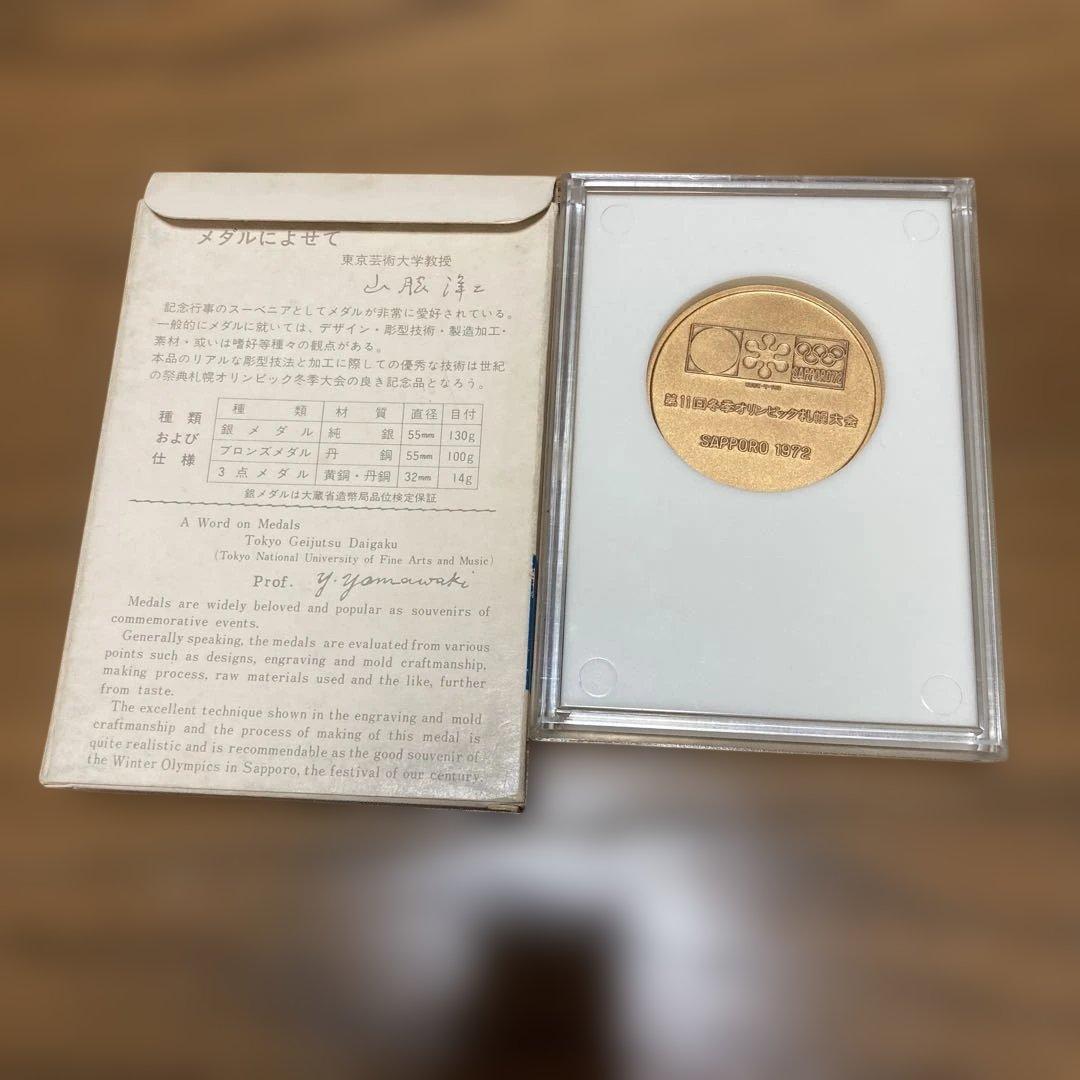 メダルによせて
東京芸術大学教授
山脇洋二
記念行事のスーベニアとしてメダルが非常に愛好されている。
一般的にメダルに就いては、デザイン・彫型技術・製造加工・
素材・或いは嗜好等種々の観点がある。
本品のリアルな彫型技法と加工に際しての優秀な技術は世紀
の祭典札幌オリンピック冬季大会の良き記念品となろう。
種類
および
仕様
種類 材質 直径 目付
銀メダル 純銀 55mm 130g
ブロンズメダル 丹銅 55mm 100g
3点メダル 黄銅・丹銅 32mm 14g
銀メダルは大蔵省造幣局品位検定保証
A Word on Medals
Tokyo Geijutsu Daigaku
(Tokyo National University of Fine Arts and Music)
Prof. Y. Yamawaki
Medals are widely beloved and popular as souvenirs of
commemorative events.
Generally speaking, the medals are evaluated from various
points such as designs, engraving and mold craftmanship,
making process, raw materials used and the like, further
from taste.
The excellent technique shown in the engraving and mold
craftmanship and the process of making of this medal is
quite realistic and is recommendable as the good souvenir of
the Winter Olympics in Sapporo, the festival of our century.
SAPPORO'72
第11回冬季オリンピック札幌大会
SAPPORO 1972